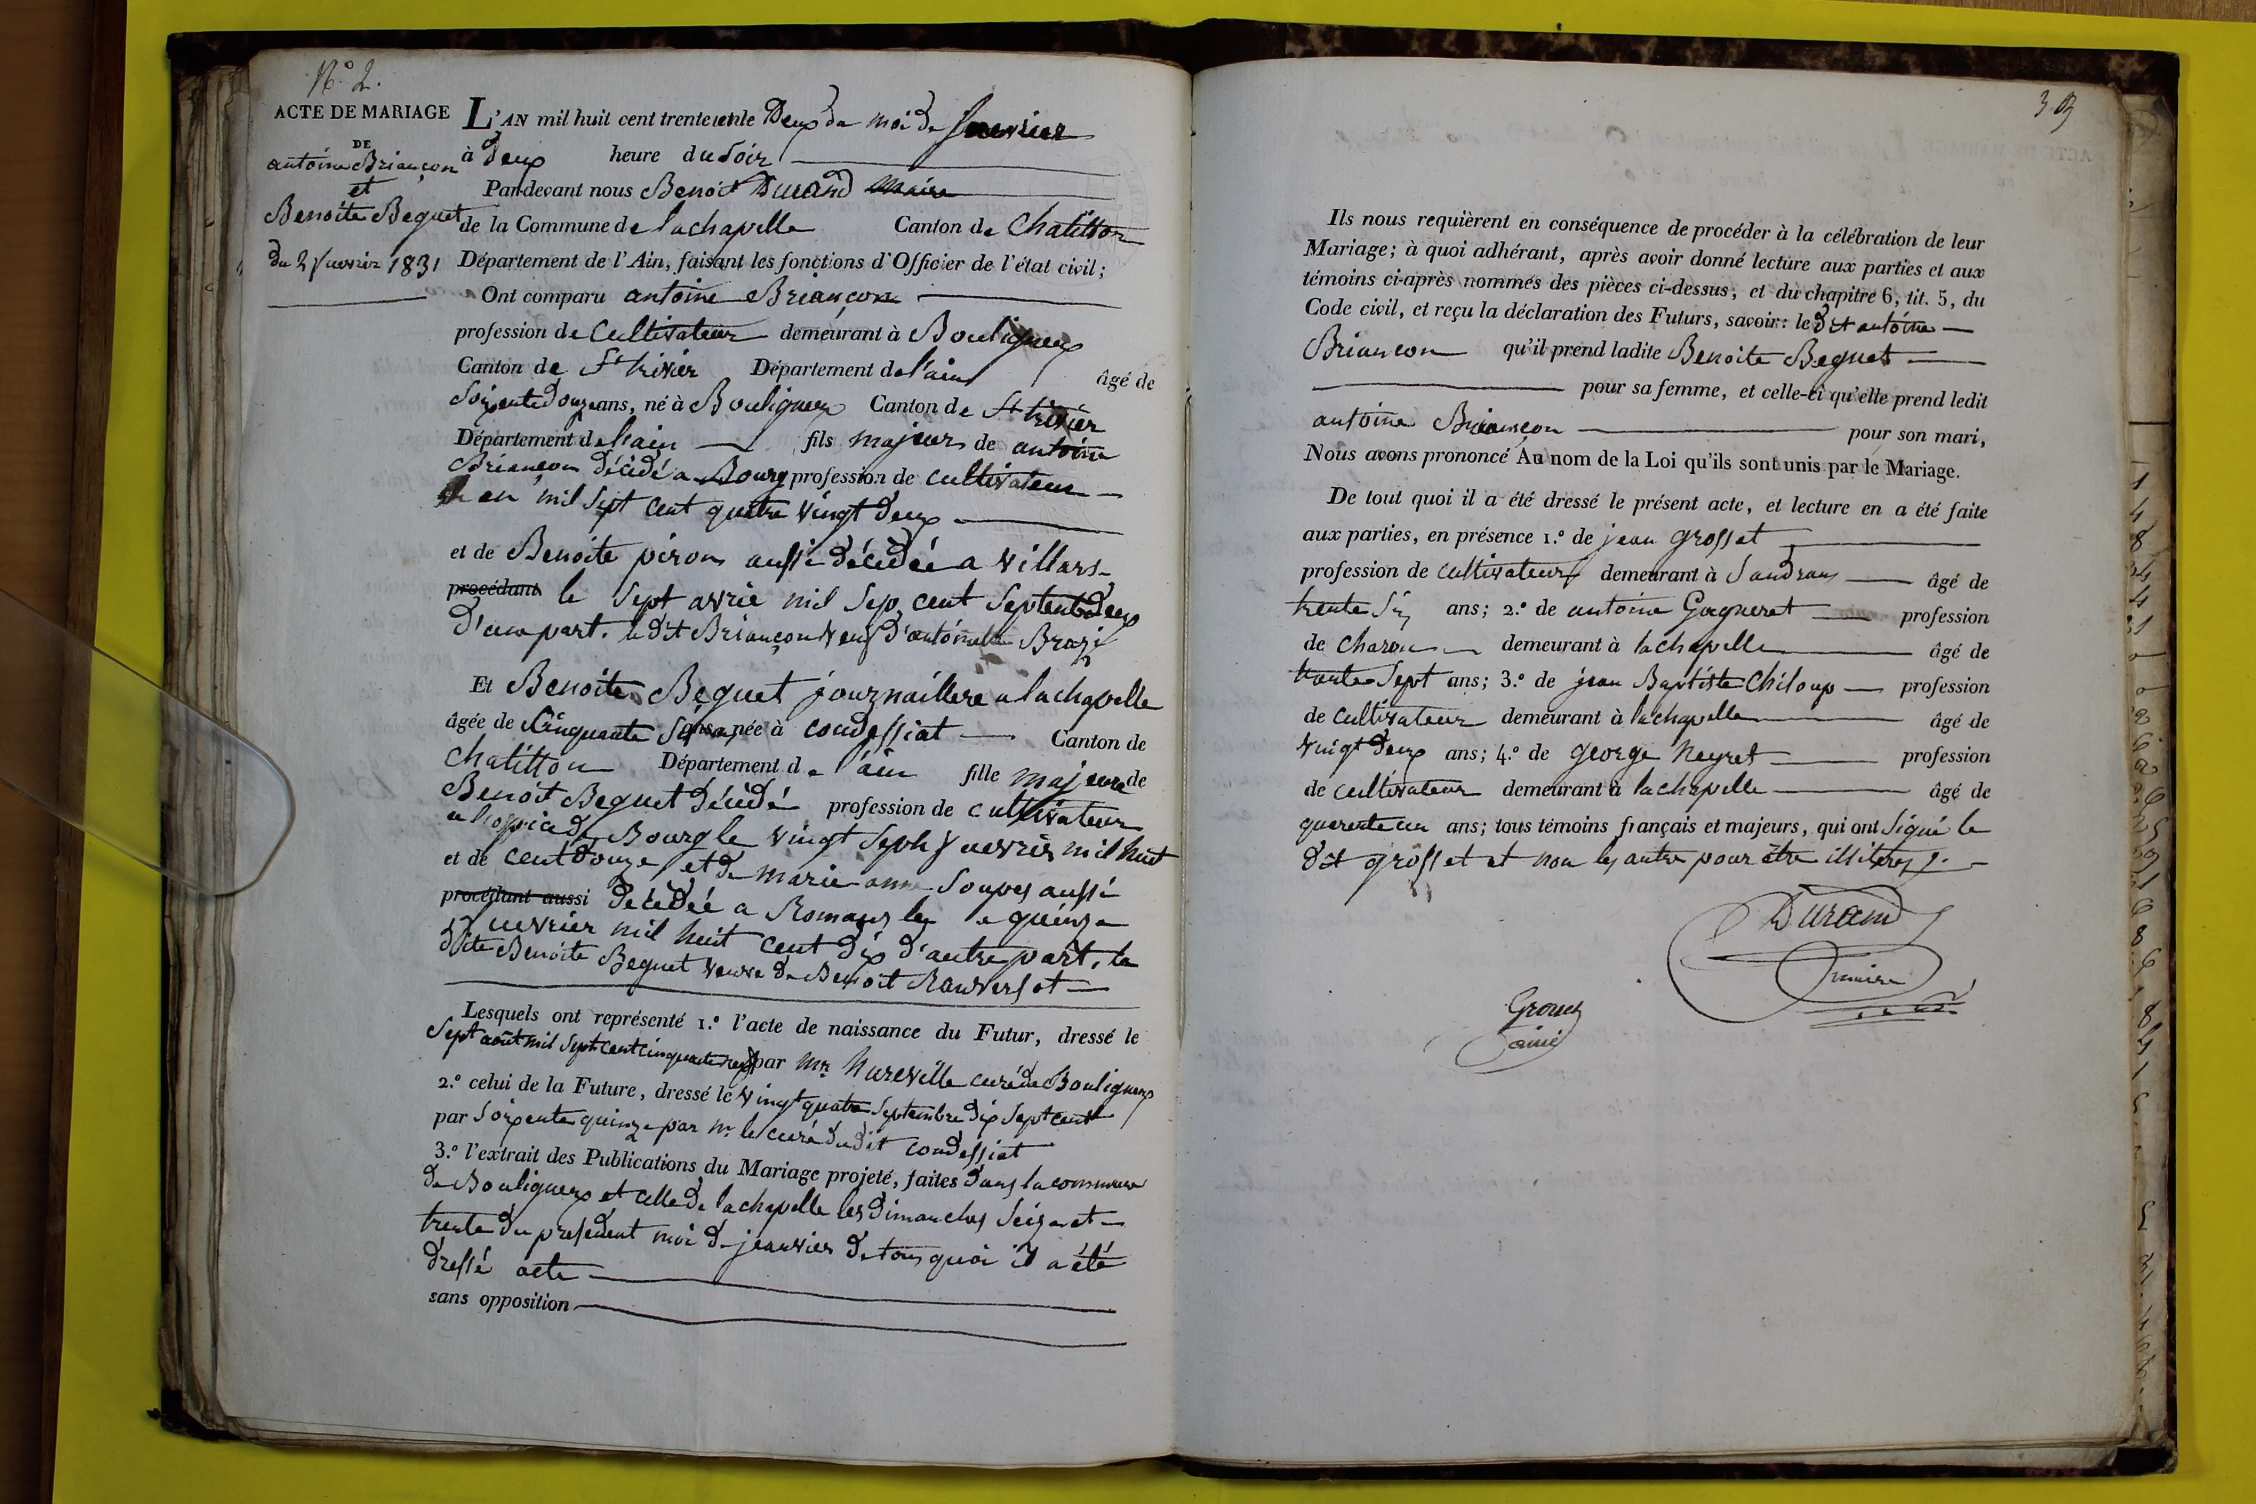 N.° 2.
ACTE DE MARIAGE
DE
antoine Briançon
et
Benoite Beguet
du 2 fuevrier 1831
L'AN mil huit cent trente un le Deux du moi de fuevrier
à Deux heure du soir
Par-devant nous Benoit Durand Maire
de la Commune de lachapelle Canton de Chatillon
Département de l'Ain, faisant les fonctions d'Officier de l'état civil;
Ont comparu antoine Briançon
profession de Cultivateur demeurant à Bouligneux
Canton de St trivier Département de l'ain âgé de
soixente douze ans, né à Bouligneux Canton de St trivier
Département de l'ain fils majeur de antoine
Briançon décédé a Bourg profession de cultivateur
en mil sept cent quatre vingt deux
et de Benoite piron aussi décédée a villars
procédant le sept avrie mil sep cent septente deux
d'une part. le dit Briançon veuf d'antoinette Brazi
Et Benoite Beguet journaillere a lachapelle
âgée de Cinquante six ans, née à condessiat Canton de
chatillon Département de l'ain fille majeure de
Benoit Beguet décédé profession de cultivateur
a hospice de Bourg le vingt sept fuevrier mil huit
et de cent douze et de marie anne Soupes aussi
procédant aussi décédée a Romans le quinze
fuevrier mil huit cent dix d'autre part. la
dite Benoite Beguet veuve de Benoit Ranversot
Lesquels ont représenté 1.° l'acte de naissance du Futur, dressé le
sept août mil sept cent cinquante neuf par Mr. Nureville curé de Bouligneux
2.° celui de la Future, dressé le vingt quatre septembre dix sept cent
par soixente quinze par Mr. le curé du dit condessiat
3.° l'extrait des Publications du Mariage projeté, faites dans la commune
de Bouligneux et celle de lachapelle les dimanches seize et
trente du presedent moi de jeanvier de tous quoi il a été
dressé acte
sans opposition
Ils nous requièrent en conséquence de procéder à la célébration de leur
Mariage; à quoi adhérant, après avoir donné lecture aux parties et aux
témoins ci-après nommés des pièces ci-dessus, et du chapitre 6, tit. 5, du
Code civil, et reçu la déclaration des Futurs, savoir: le dit antoine
Briançon qu'il prend ladite Benoite Beguet
pour sa femme, et celle-ci qu'elle prend ledit
antoine Briançon pour son mari,
Nous avons prononcé Au nom de la Loi qu'ils sont unis par le Mariage.
De tout quoi il a été dressé le présent acte, et lecture en a été faite
aux parties, en présence 1.° de jean grosset
profession de cultivateur demeurant à Sandrans âgé de
trente six ans; 2.° de antoine Gagneret profession
de charon demeurant à lachapelle âgé de
trente sept ans; 3.° de jean Baptiste Chiloup profession
de cultivateur demeurant à lachapelle âgé de
vingt deux ans; 4.° de george Neyret profession
de cultivateur demeurant à lachapelle âgé de
querente un ans; tous témoins français et majeurs, qui ont signé le
dit grosset et non les autre pour être illiterez
Durand
maire